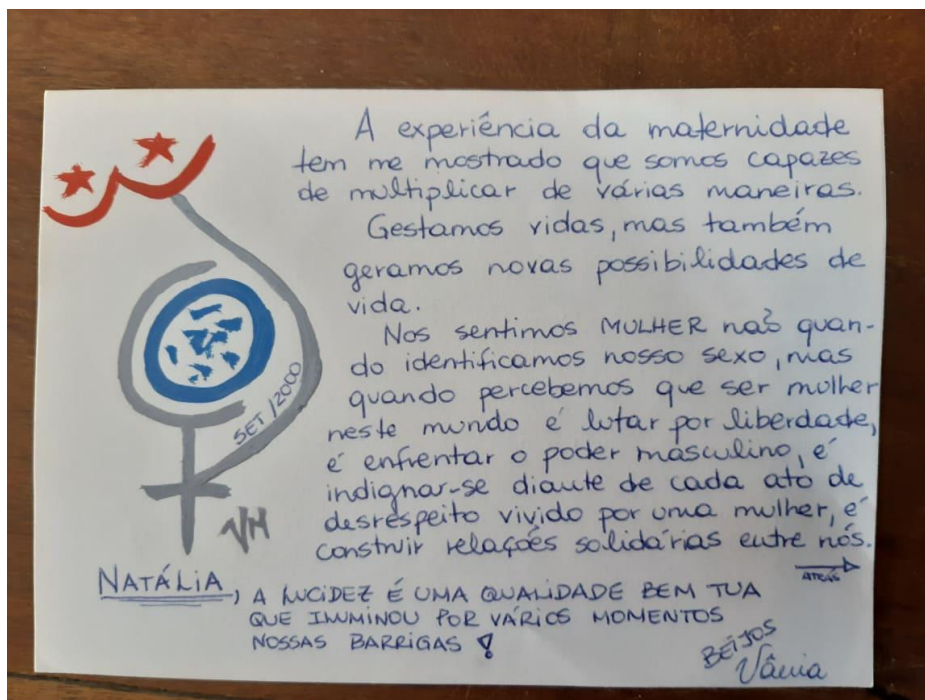 A experiência da maternidade
tem me mostrado que somos capazes
de multiplicar de várias maneiras.
Gestamos vidas, mas também
geramos novas possibilidades de
vida.
Nos sentimos MULHER não quan-
do identificamos nosso sexo, mas
quando percebemos que ser mulher
neste mundo é lutar por liberdade,
é enfrentar o poder masculino, é
indignar-se diante de cada ato de
desrespeito vivido por uma mulher, é
construir relações solidárias entre nós.
ATRÁS
SET/2000
VH
NATÁLIA, A LUCIDEZ É UMA QUALIDADE BEM TUA
QUE ILUMINOU POR VÁRIOS MOMENTOS
NOSSAS BARRIGAS!
BEIJOS
Vânia